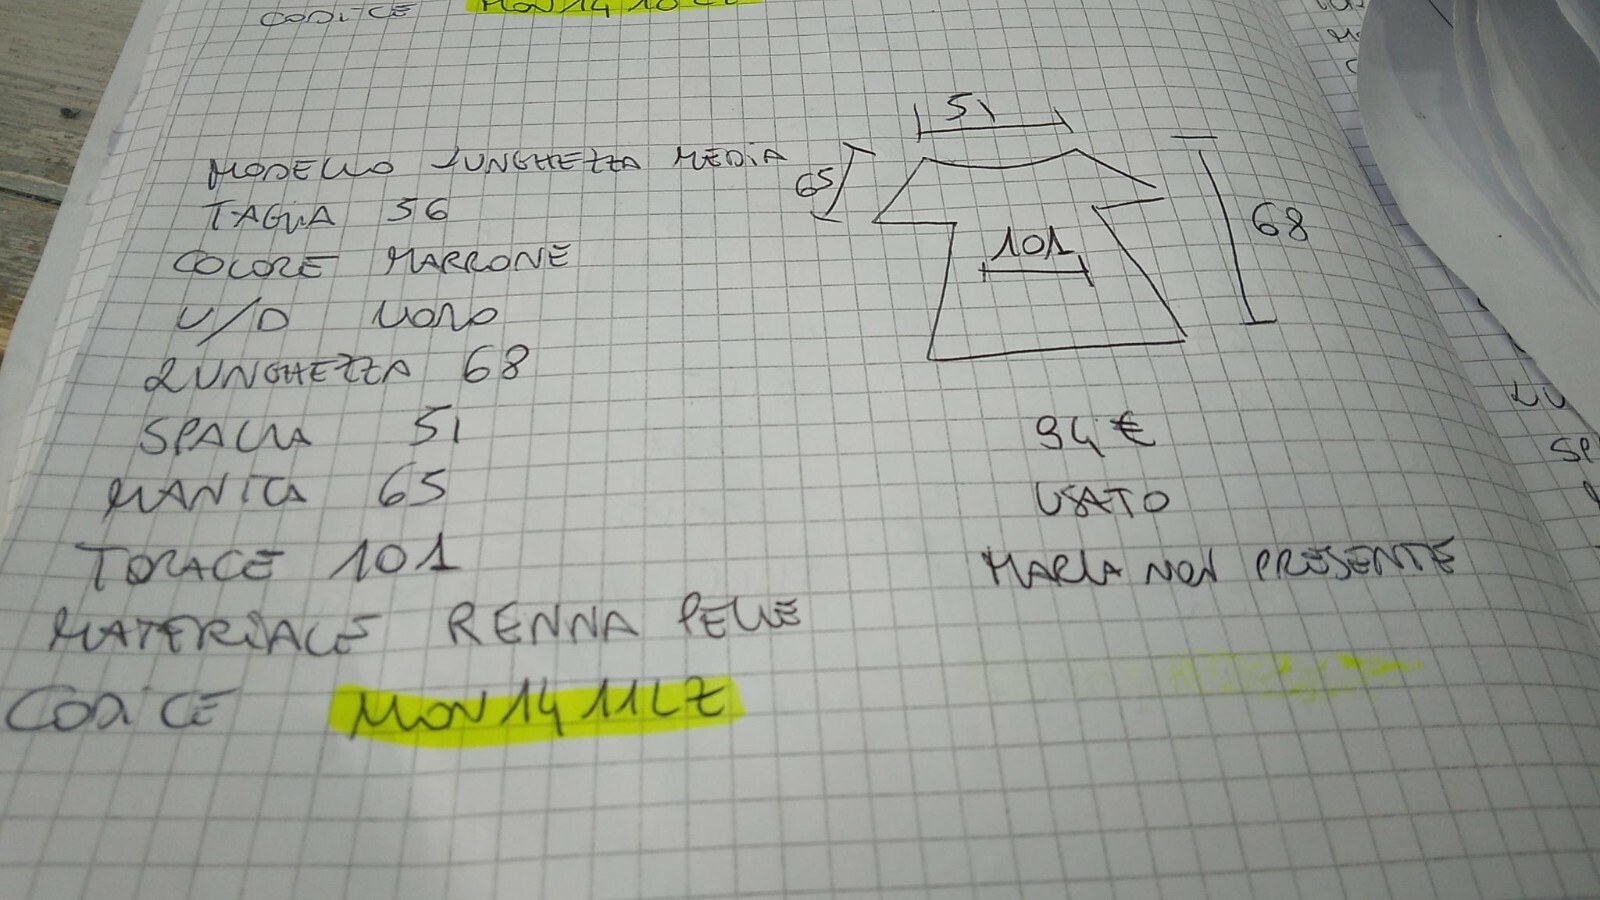 CODICE MON14 10LZ
MODELLO LUNGHEZZA MEDIA
TAGLIA 56
COLORE MARRONE
U/D UOMO
LUNGHEZZA 68
SPALLA 51
MANICA 65
TORACE 101
MATERIALE RENNA PELLE
CODICE MON14 11LZ
51
65
101
68
94 €
USATO
MARCA NON PRESENTE
LU
SP